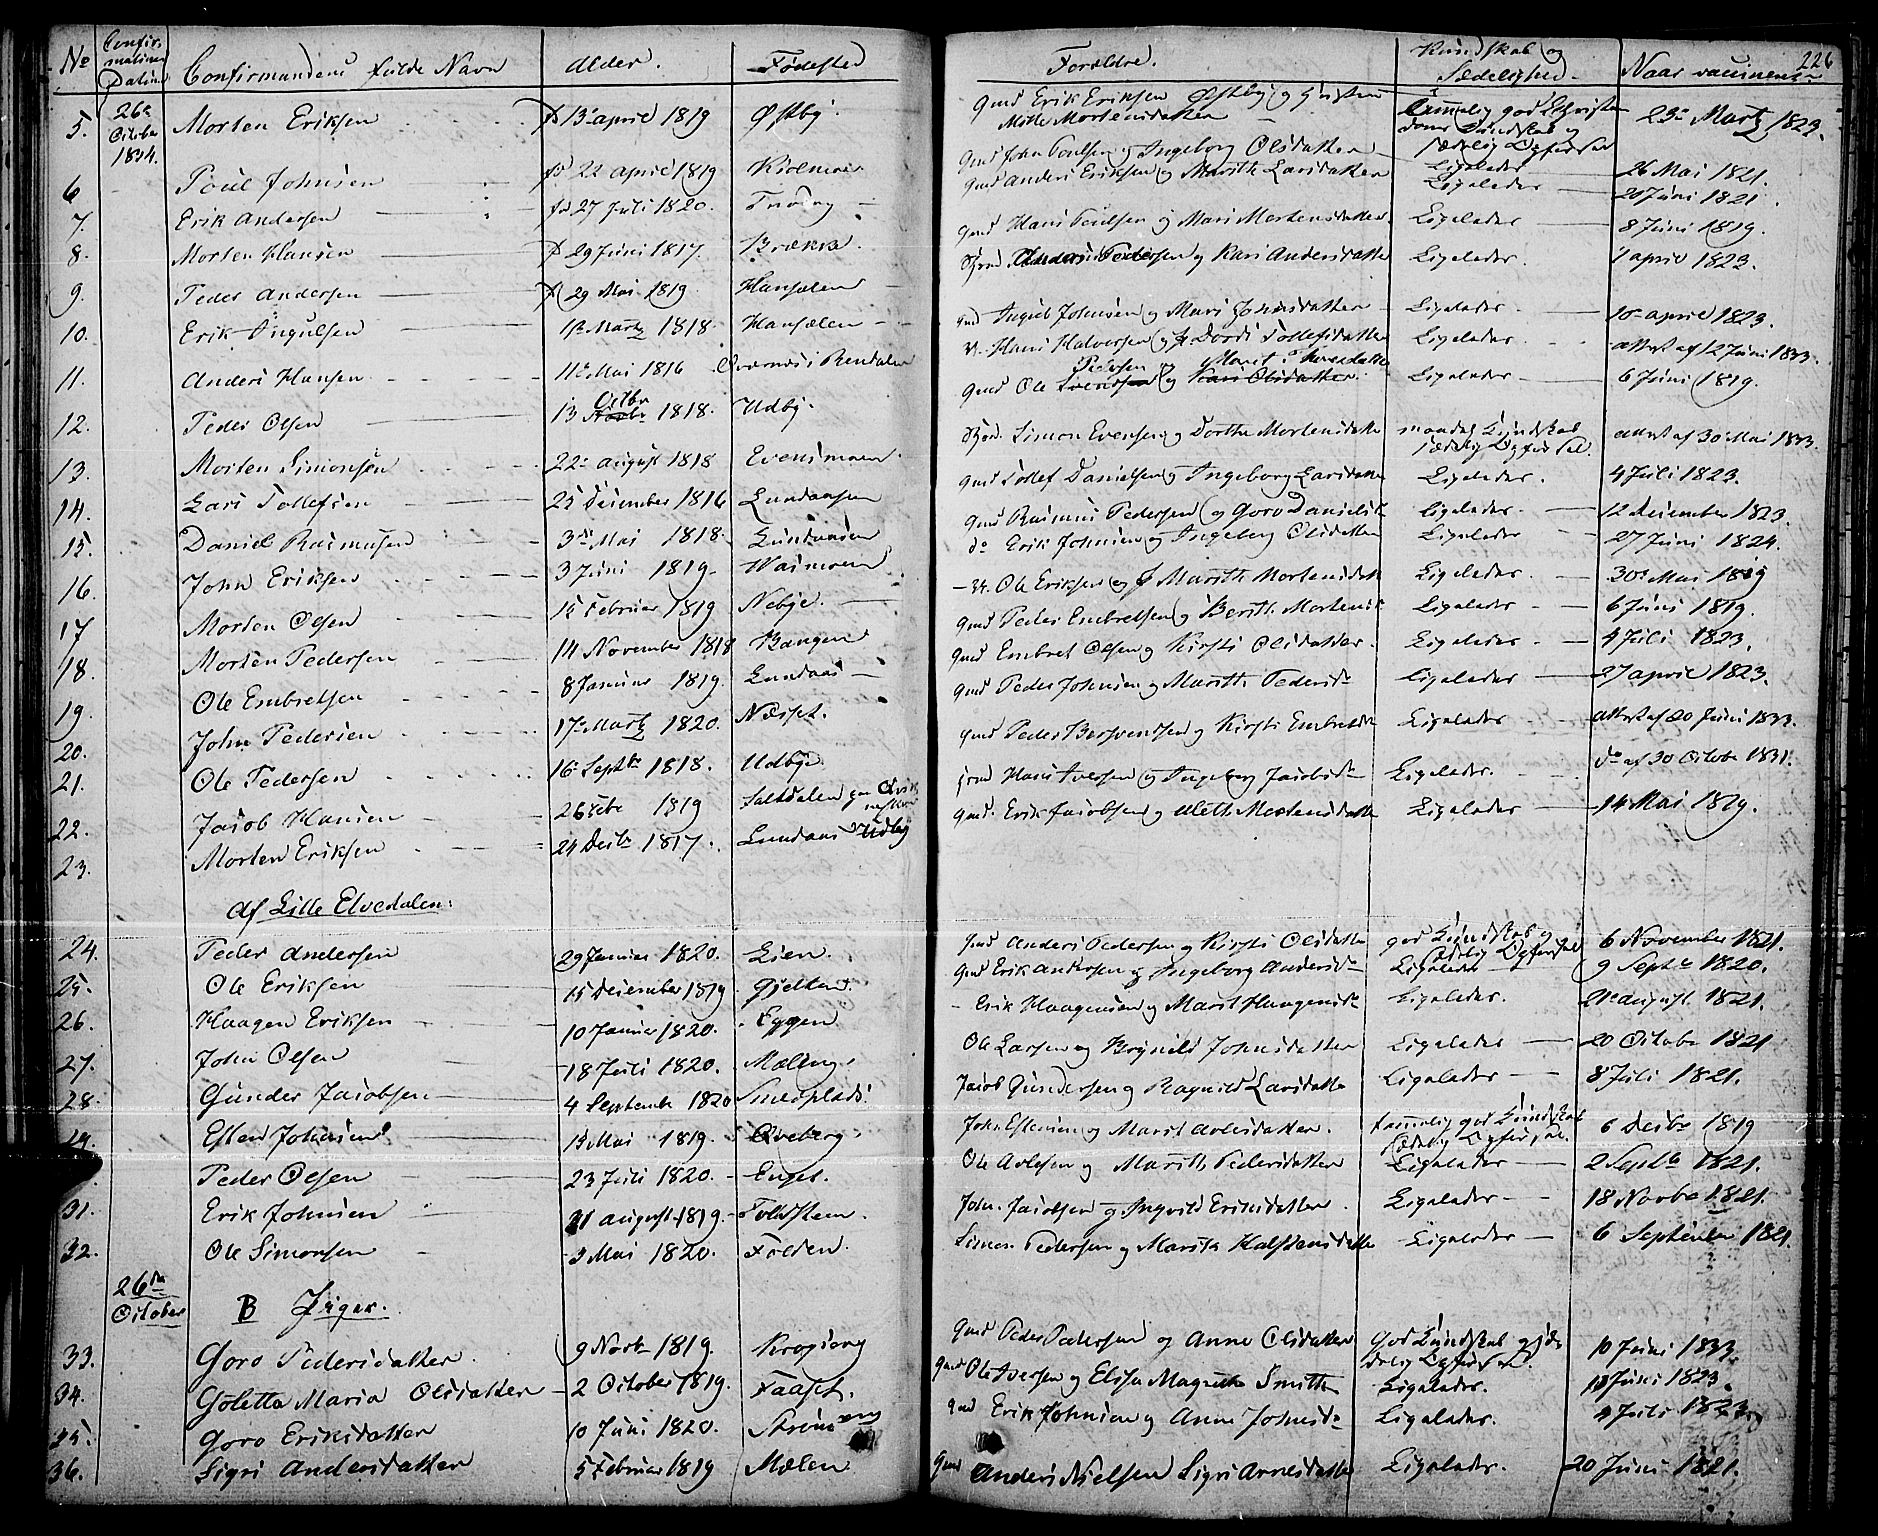 No Confirmations Datum Confirmandens fulde Navn Alder. Fødested Forældre. Kundskab og Sædelighed. Naar vaccineret 226
5. 26de October 1834. Morten Eriksen 13de april 1819 Østby. Gmd Erik Eriksen Østby og Mortensdatter 23de Martz 1823.
6 Poul Johnsen 22 april 1819 Gmd John Poulsen og Ingeborg Olsdatter Ligeledes 26 Mai 1821.
7. Erik Andersen 27 Juli 1820. Gmd Anders Eriksen og Marith Larsdatter Ligeledes 20 Juni 1821.
8. Morten Hansen 29 Juni 1817. Brække. Gmd Hans Poulsen og Mari Mortensdatter Ligeledes 8 Juni 1819.
9. Peder Andersen 29 Mai 1819. Hansælen Anders Pedersen og Kari Andersdatter Ligeledes. 1 april 1823.
10. Erik Ingulsen Martz 1818. Hansælen Gmd Ingul Johnsen og Mari Johnsdatter Ligeledes 10de april 1823.
11. Anders Hansen 11te Mai 1816 i Rendalen Hans Halvorsen og Tollefsdatter Ligeledes. attest af 12 Juni 1833.
12. Peder Olsen 13 Octbr 1818. Udby. Gmd Ole Pedersen og Marit Iversdatter Ligeledes 6 Juni 1819.
13. Morten Simonsen 22de august 1818 Evensmoen Simon Evensen og Dorthe Mortensdatter maadel. Kundskab sædelig Opførsel attest af 30 Mai 1833.
14. Lars Tollefsen 25 December 1816 Lundaasen Gmd Tollef Danielsen og Ingeborg Larsdatter Ligeledes. 4 Juli 1823.
15. Daniel Rasmusen 3die Mai 1818. Lundaasen Gmd Rasmus Pedersen og Goro Danielsd. Ligeledes. 12 December 1823.
16. John Eriksen 3 Juni 1819. do Erik Johnsen og Ingeborg Olsdatter Ligeledes 27 Juni 1824.
17 Morten Olsen 15 Februar 1819 Nebye. Ole Eriksen og Marith Mortensdatt Ligeledes. 30te Mai 1819
18. Morten Pedersen 14 November 1818 Bangen Gmd Peder Embretsen og Berith Mortensd. Ligeledes 6 Juni 1819.
19. Ole Embretsen 8 Januar 1819. Lundaas Gmd Embret Olsen og Kirsti Olsdatter. Ligeledes 4 Juli 1823.
20. John Pedersen 17de Martz 1820. Næsset. Gmd Peder Johnsen og Marith Pedersdr Ligeledes 27 april 1823.
21. Ole Pedersen 16de Septbr 1818. Udbye. Gmd Peder og Kirsti Embretsdr Ligeledes attest af 20 Juni 1833.
22. Jacob Hansen 26 Febr 1819 Hans Iversen og Ingeborg Jacobsdr Ligeledes. do af 30 Octobr 1831.
23. Morten Eriksen 24 Decbr 1817. Lundaas Udby Gmd. Erik Jacobsen og Mortensdatter Ligeledes 14 Mai 1819.
af Lille Elvedalen:
24. Peder Andersen 29 Januar 1820. Lien. Gmd Anders Pedersen og Kirsti Olsdatter god Kundskab og sædelig Opførsel 6 November 1821.
25. Ole Eriksen 15 December 1819. Gjelten. Gmd Erik Andersen og Ingeborg Andersdr Ligeledes 9 Septbr 1820.
26. Haagen Eriksen 10 Januar 1820. Eggen Erik Haagensen og Marit Haagensdr Ligeledes. 21de august 1821.
27. John Olsen 18 Juli 1820. Moeling. Ole Larsen og Brynild Johnsdatter Ligeledes 20 Octobr 1821
28. Gunder Jacobsen 4 September 1820 Jacob Gundersen og Ragnild Larsdatter Ligeledes 8 Juli 1821.
29. Esten Johnsen 15 Mai 1819. Qveberg. John Estensen og Marit Arnesdatter. temmelig god Kundskab sædelig Opførsel. 6 Decbr 1819
Peder Olsen 23 Juli 1820. Enget. Ole Arnesen og Marith Pedersdatter Ligeledes 2 Septbr 1821.
31. Erik Johnsen 21 august 1819. John Jacobsen og Ingrild Eriksdatter. Ligeledes 18 Novbr 1821.
32. Ole Simonsen 3 Mai 1820. Folden. Simon Pedersen og Marith Halstensdatter Ligeledes 6 September 1821.
26de October B Piger.
33. Goro Pedersdatter. 9 Novbr 1819. Gmd Peder Pedersen og Anne Olsdatter God Kundskab og sædelig Opførsel. 10 Juni 1833.
34. Goletta Maria Olsdatter 2 October 1819. Faaset. Gmd Ole Iversen og Elisa Magrethe Smith Ligeledes. Juni 1823.
35. Goro Eriksdatter 10 Juni 1820. Strømseng Gmd Erik Johnsen og Anne Johnsdr Ligeledes. 4 Juli 1823
36. Sigri Andersdatter 5 Februar 1819 Mælen Gmd Anders Nielsen Sigri Arnesdatter Ligeledes. 20 Juni 1821.